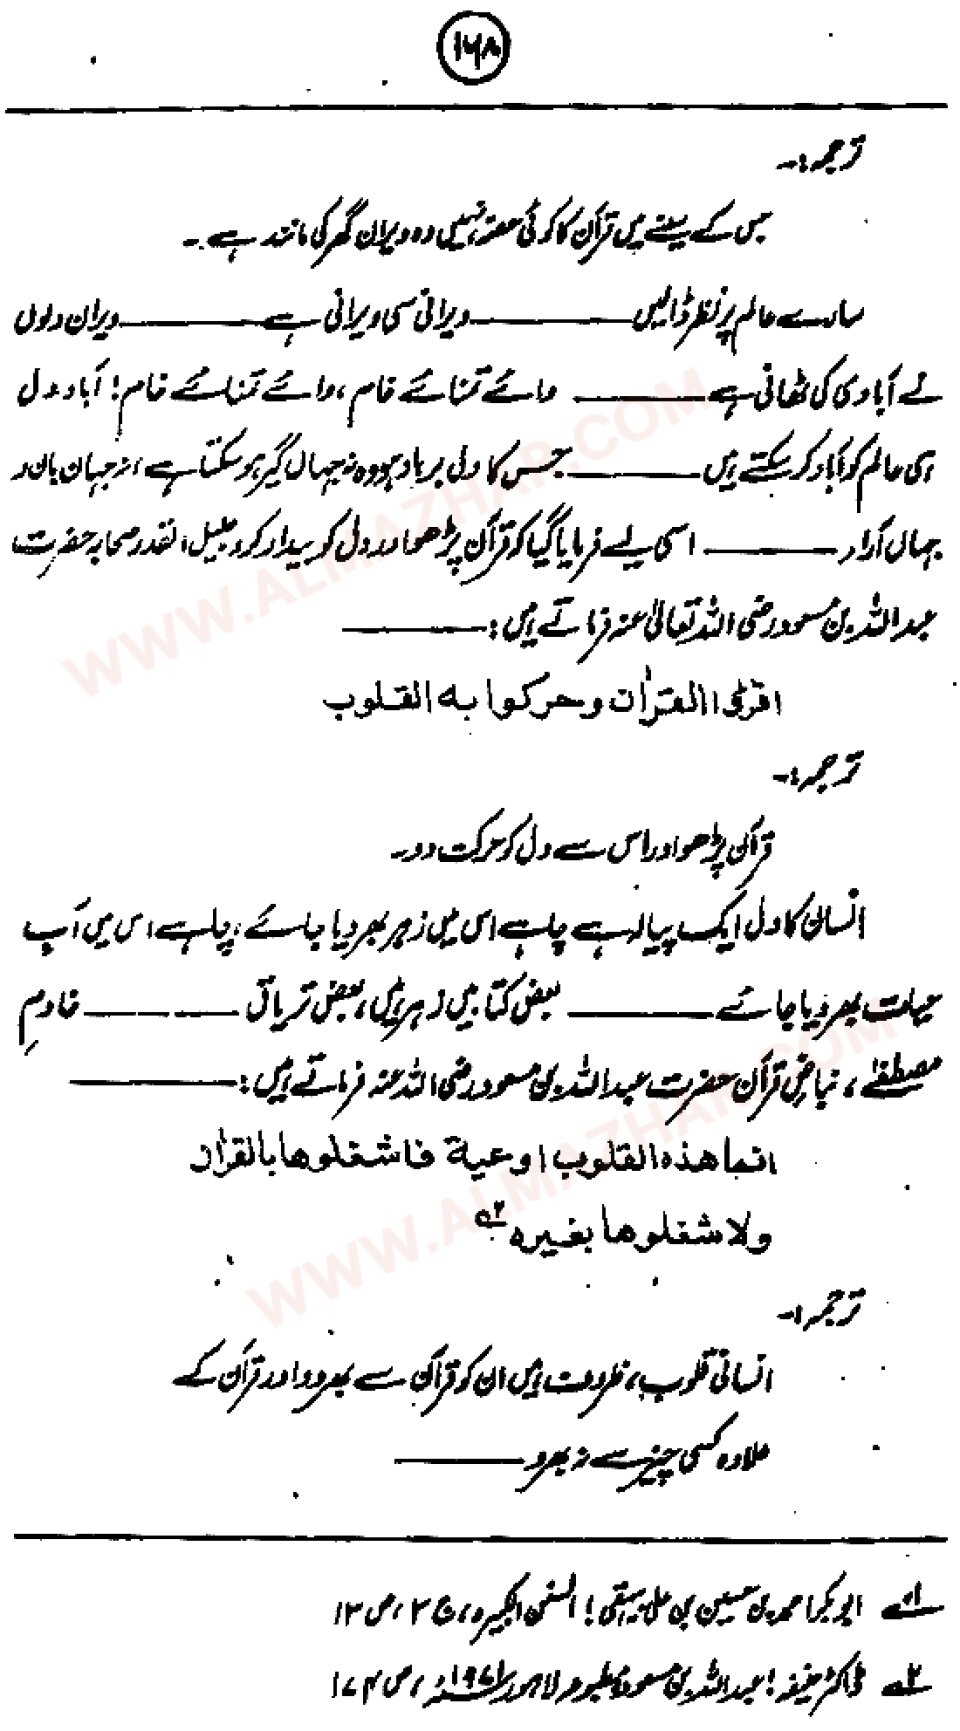 ۱۶۸
ترجمہ :۔
جس کے سینے میں قرآن کا کوئی حصّہ نہیں وہ ویران گھر کی مانند ہے ۔
سارے عالم پر نظر ڈالیں ——— ویرانی سی ویرانی ہے ——— ویران دلوں
نے آبادی کی ٹھانی ہے ——— وائے تمنائے خام ، وائے تمنائے خام ! آباد دل
ہی عالم کو آباد کر سکتے ہیں ——— جس کا دل برباد ہو وہ نہ جہاں گیر ہو سکتا ہے ، نہ جہان بان و
جہاں آراء ——— اسی لیے فرمایا گیا کہ قرآن پڑھو اور دل کو بیدار کرو جلیل القدر صحابہ حضرت
عبداللہ بن مسعود رضی اللہ تعالیٰ عنہ فرماتے ہیں : ———
اقرئ االقراٰن وحرکوا به القلوب
ترجمہ :۔
قرآن پڑھو اور اس سے دل کو حرکت دو ۔
انسان کا دل ایک پیالہ ہے چاہے اس میں زہر بھر دیا جائے ، چاہے اس میں آبِ
حیات بھر دیا جائے ——— بعض کتابیں زہر ہیں ، بعض تریاق ——— خادمِ
مصطفٰے ، نباضِ قرآن حضرت عبداللہ بن مسعود رضی اللہ عنہ فرماتے ہیں : ———
انما هذه القلوب اوعية فاشغلوها بالقراٰن
ولا شغلوها بغيره ۲ہ
ترجمہ :۔
انسانی قلوب ، ظروف ہیں ان کو قرآن سے بھر دو اور قرآن کے
علاوہ کسی چیز سے نہ بھرو ———
۱ے ابوبکر احمد بن حسین بن علی بیہقی ! السنن الکبیرہ ، ج ۳ ، ص ۱۳
۲ے ڈاکٹر حنیفہ ! عبداللہ بن مسعود مطبوعہ لاہور ۱۹۷۱ء ، ص ۱۷۴
WWW.ALMAZHAR.COM
WWW.ALMAZHAR.COM